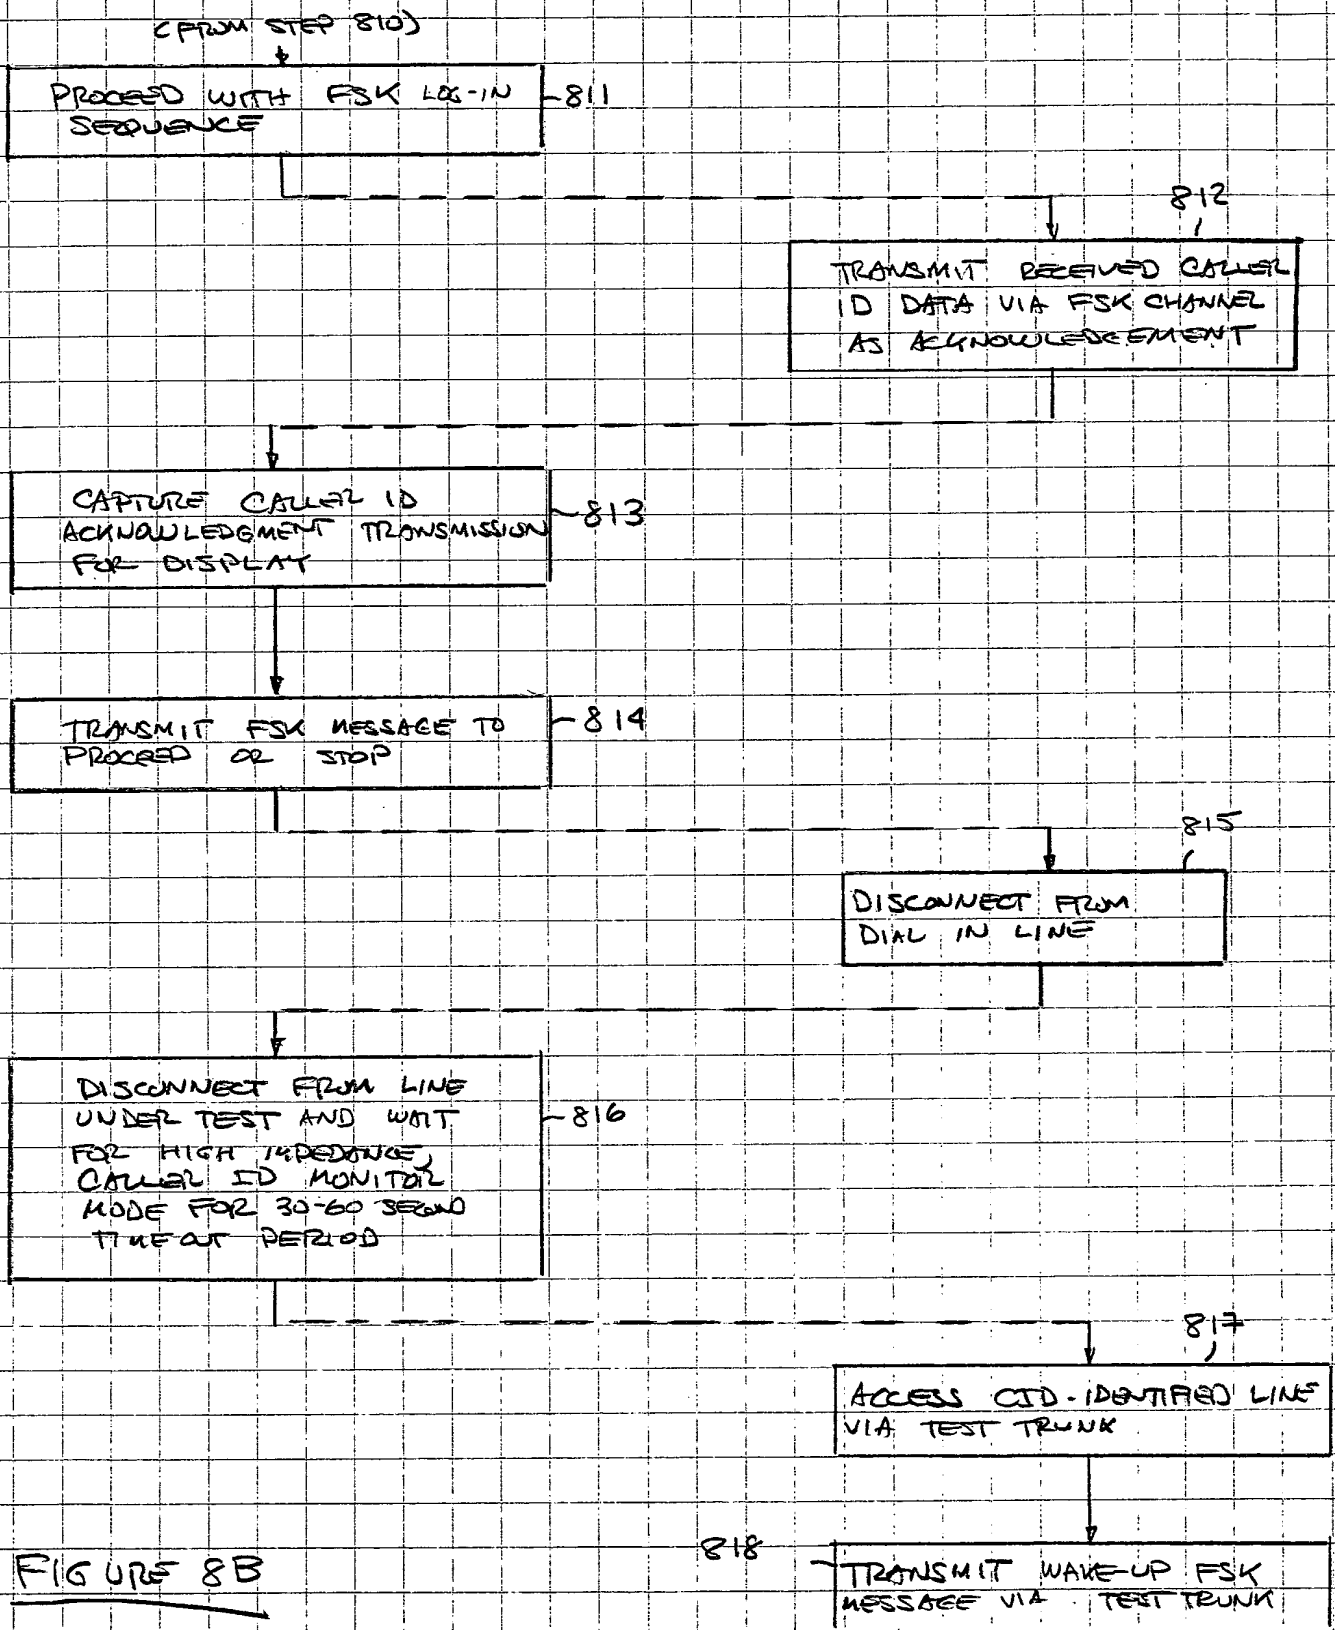 (FROM STEP 810)
PROCEED WITH FSK LOG-IN
SEQUENCE
811
812
TRANSMIT RECEIVED CALLER
ID DATA VIA FSK CHANNEL
AS ACKNOWLEDGEMENT
CAPTURE CALLER ID
ACKNOWLEDGMENT TRANSMISSION
FOR DISPLAY
813
TRANSMIT FSK MESSAGE TO
PROCEED OR STOP
814
815
DISCONNECT FROM
DIAL IN LINE
DISCONNECT FROM LINE
UNDER TEST AND WAIT
FOR HIGH IMPEDANCE,
CALLER ID MONITOR
MODE FOR 30-60 SECOND
TIMEOUT PERIOD
816
817
ACCESS CID-IDENTIFIED LINE
VIA TEST TRUNK
818
TRANSMIT WAKE-UP FSK
MESSAGE VIA TEST TRUNK
FIGURE 8B